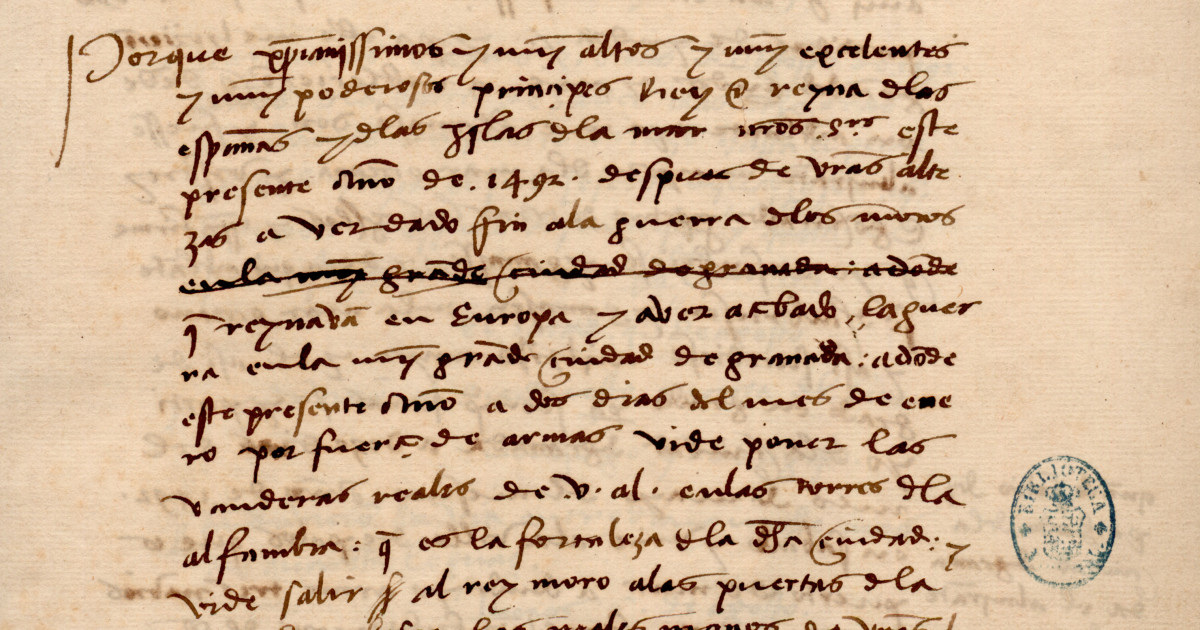 Porque xp̄ianissimos y muy altos y muy excelentes
y muy poderosos prinçipes Rey e reyna dlas
españas y dlas yslas dla mar nr̄os Sres este
presente año de .1492. despues de vr̄as alte
zas aver dado fin ala guerra dlos moros
enla muy grāde çiudad de granada: adōde
q̄ reynavā en Europa y aver acabado laguer
ra enla muy grāde çiudad de granada: adōde
este presente año a dos dias del mes de ene
ro por fuerça de armas vide poner las
vanderas reales de .v. al. enlas torres dla
alfambra: q̄ es la fortaleza dla dha çiudad: y
vide salir al rey moro alas puertas dla
BIBLIOTECA